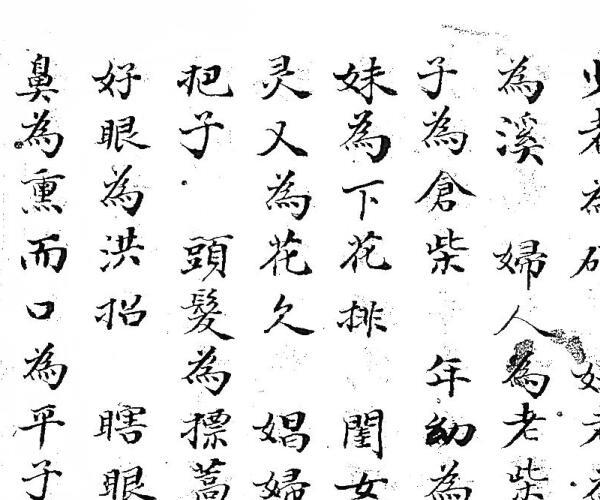 為溪 婦人為老柴
子為倉柴 年幼為
妹為下花排 閨女
灵又為花久 娼婦
把子 頭髮為摽蒿
好眼為洪招 瞎眼
鼻為熏而口為平子